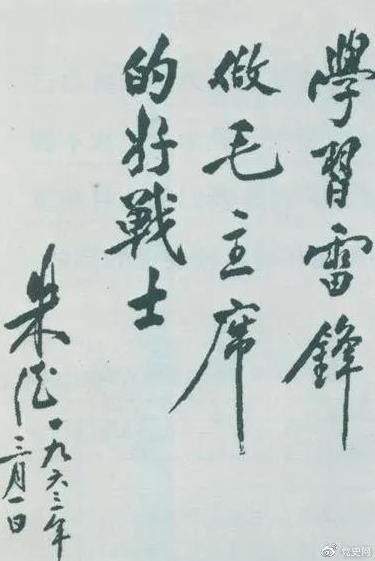 學習雷鋒
做毛主席
的好戰士
朱德一九六三年
三月一日
党史网